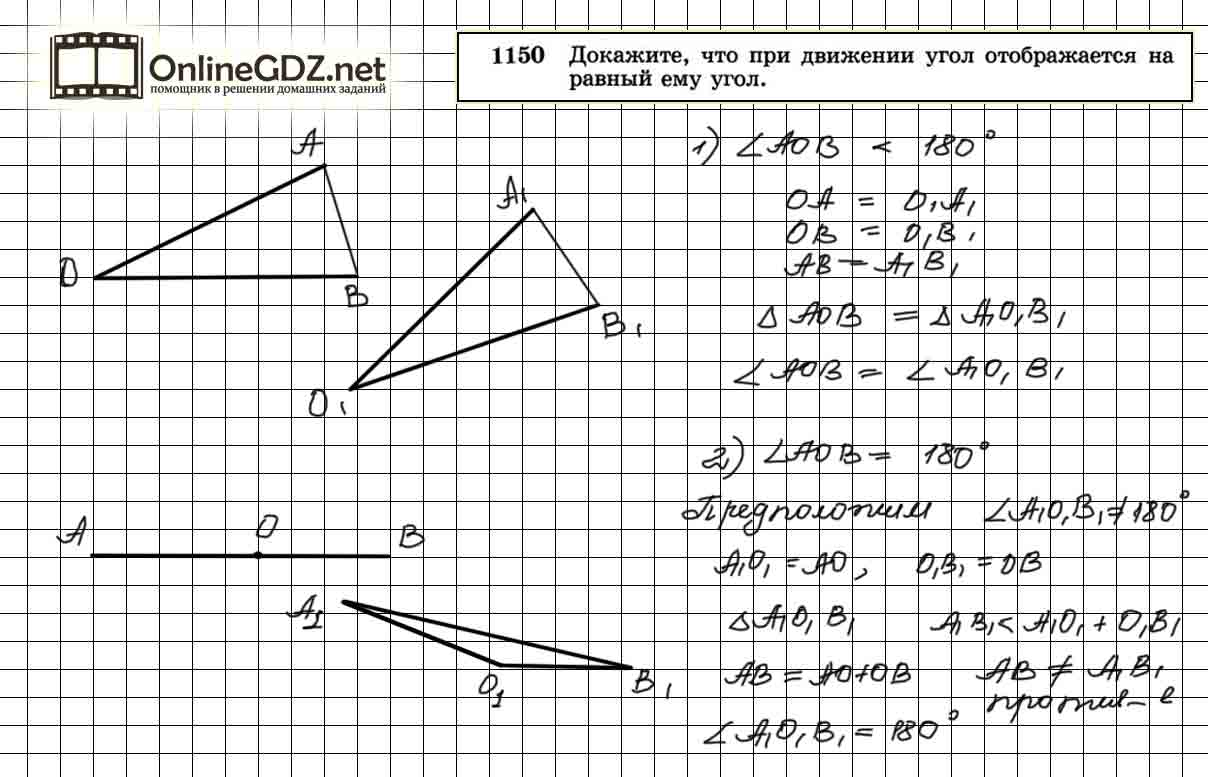 OnlineGDZ.net
помощник в решении домашних заданий
1150 Докажите, что при движении угол отображается на
равный ему угол.
A
O
B
A₁
B₁
O₁
1) ∠AOB < 180°
OA = O₁A₁
OB = O₁B₁
AB = A₁B₁
△ AOB = △ A₁O₁B₁
∠AOB = ∠A₁O₁B₁
A
O
B
A₁
O₁
B₁
2) ∠AOB = 180°
Предположим ∠A₁O₁B₁ ≠ 180°
A₁O₁ = AO, O₁B₁ = OB
△ A₁O₁B₁ A₁B₁ < A₁O₁ + O₁B₁
AB = AO+OB AB ≠ A₁B₁
против-е
∠A₁O₁B₁ = 180°